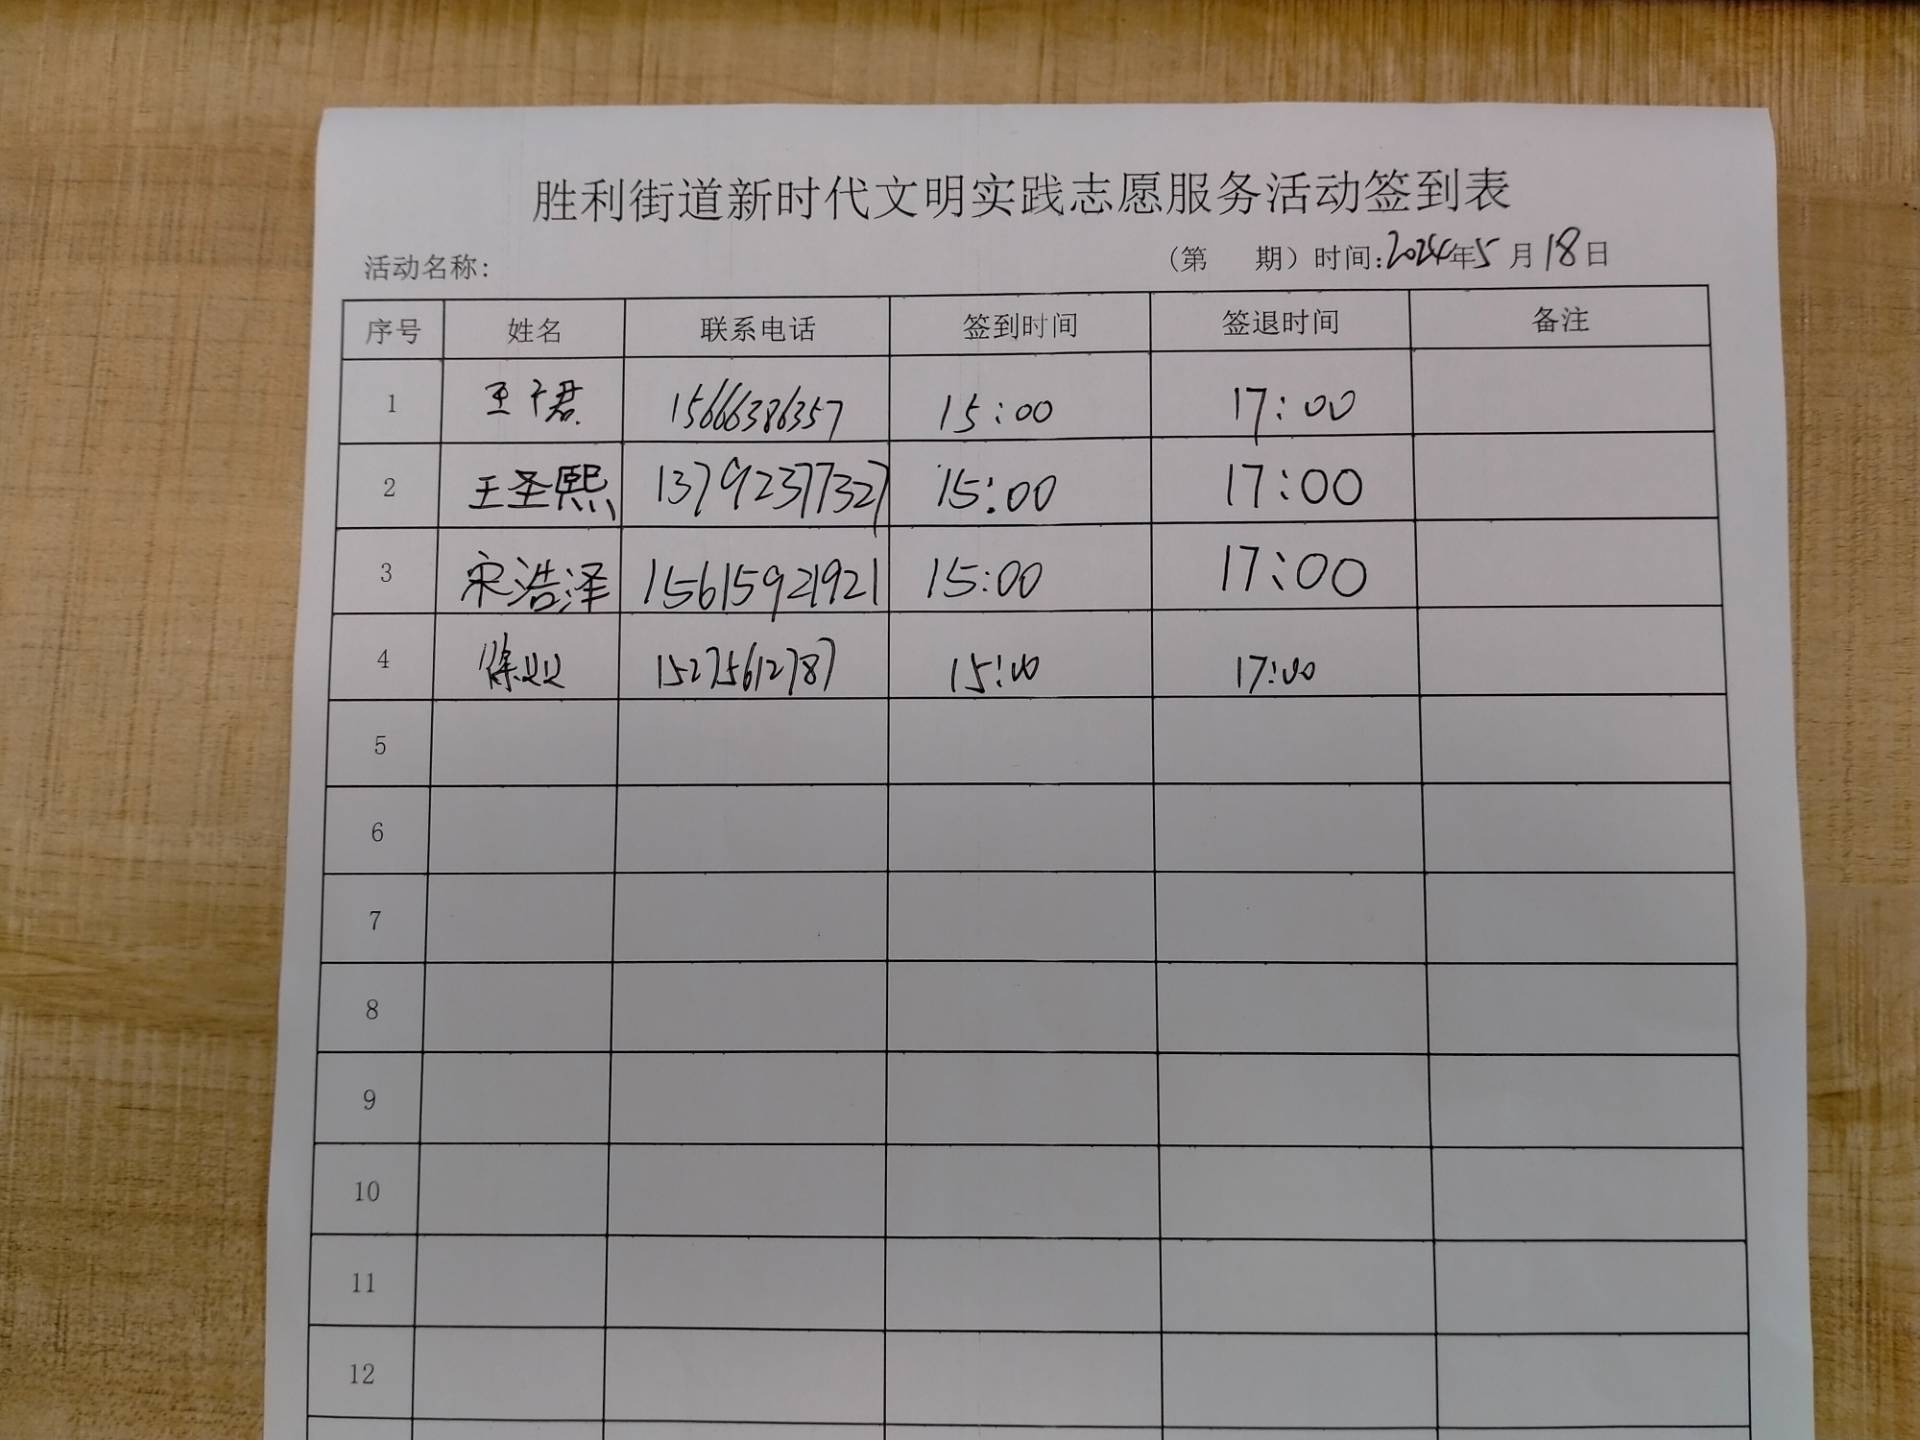 胜利街道新时代文明实践志愿服务活动签到表
活动名称: (第 期) 时间:2024年5月18日
序号 姓名 联系电话 签到时间 签退时间 备注
1 王子君 15666386357 15:00 17:00
2 王圣熙 13792377327 15:00 17:00
3 宋浩泽 15615921921 15:00 17:00
4 徐 15275612787 15:00 17:00
5
6
7
8
9
10
11
12